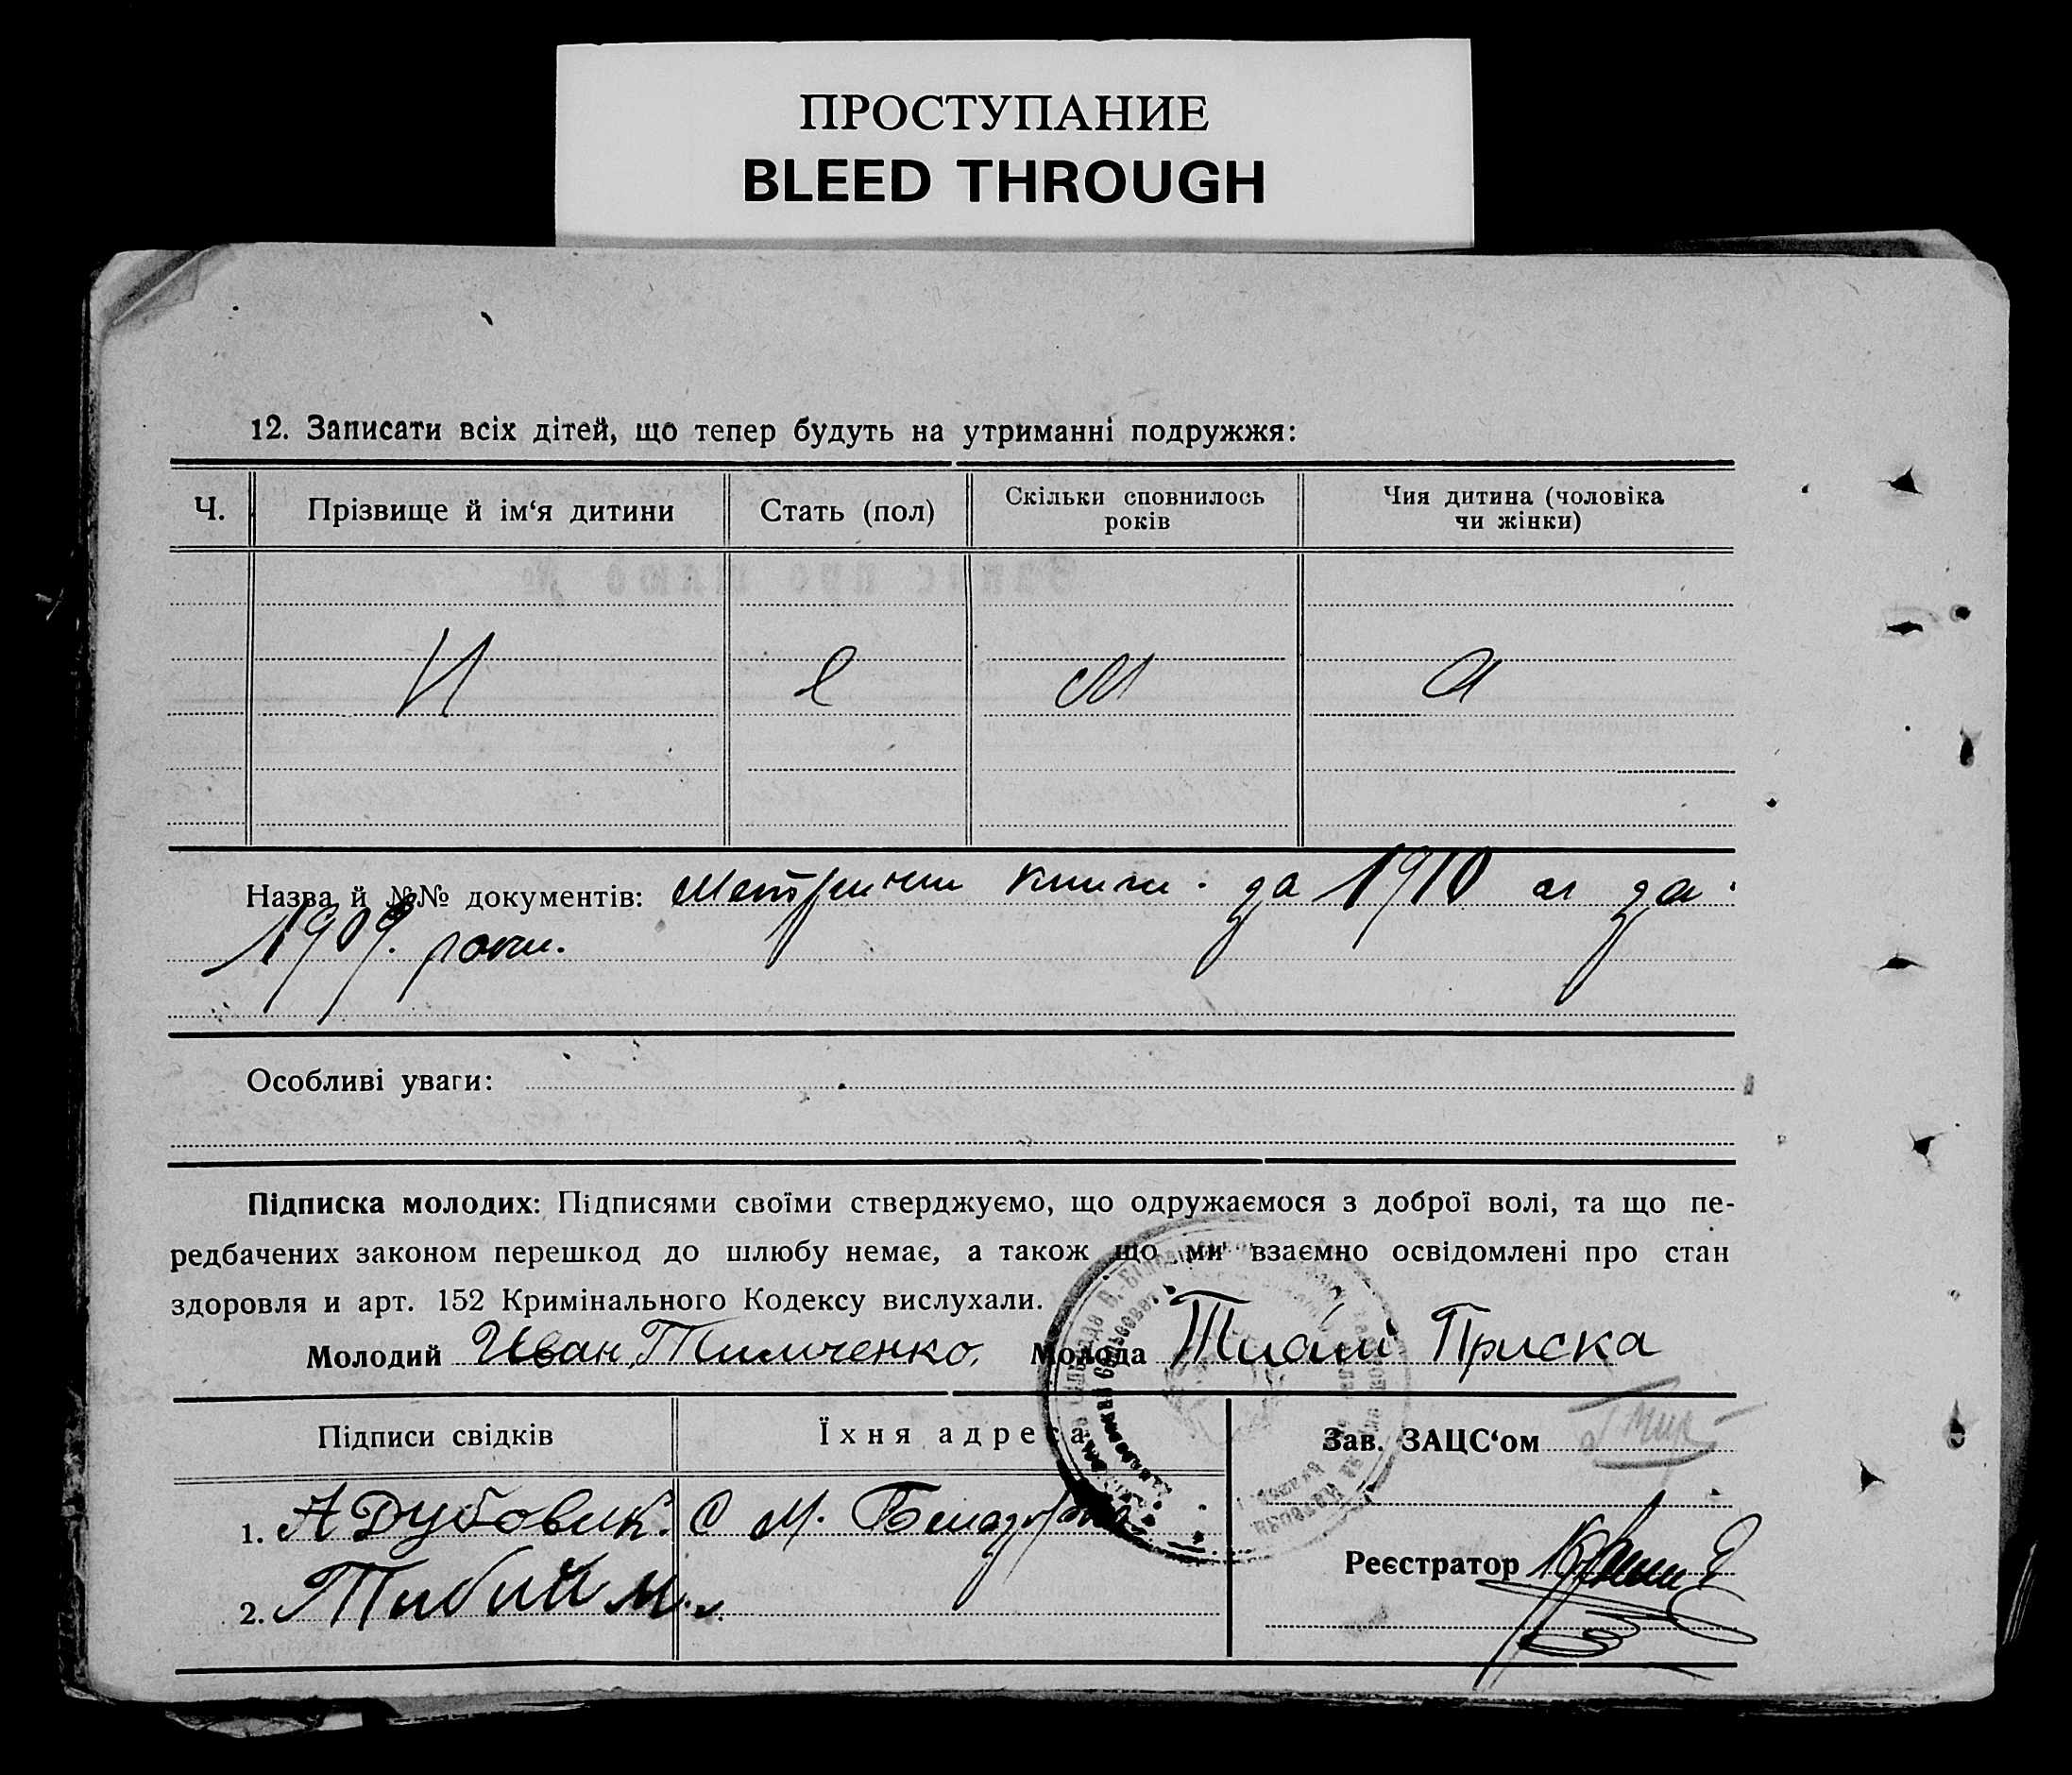 ПРОСТУПАНИЕ
BLEED THROUGH
12. Записати всіх дітей, що тепер будуть на утриманні подружжя:
Ч. Прізвище й ім‘я дитини Стать (пол) Скільки сповнилось років Чия дитина (чоловіка чи жінки)
Н е м а
Назва й №№ документів: Метричні книги за 1910 и за
1909. роки.
Особливі уваги:
Підписка молодих: Підписями своїми стверджуємо, що одружаємося з доброї волі, та що пе-
редбачених законом перешкод до шлюбу немає, а також що ми взаємно освідомлені про стан
здоровля и арт. 152 Кримінального Кодексу вислухали.
Молодий Иван Тимченко. Молода Приска
Підписи свідків Їхня адреса Зав. ЗАЦС‘ом
1. А Дубовик. С М.
Реєстратор
2.